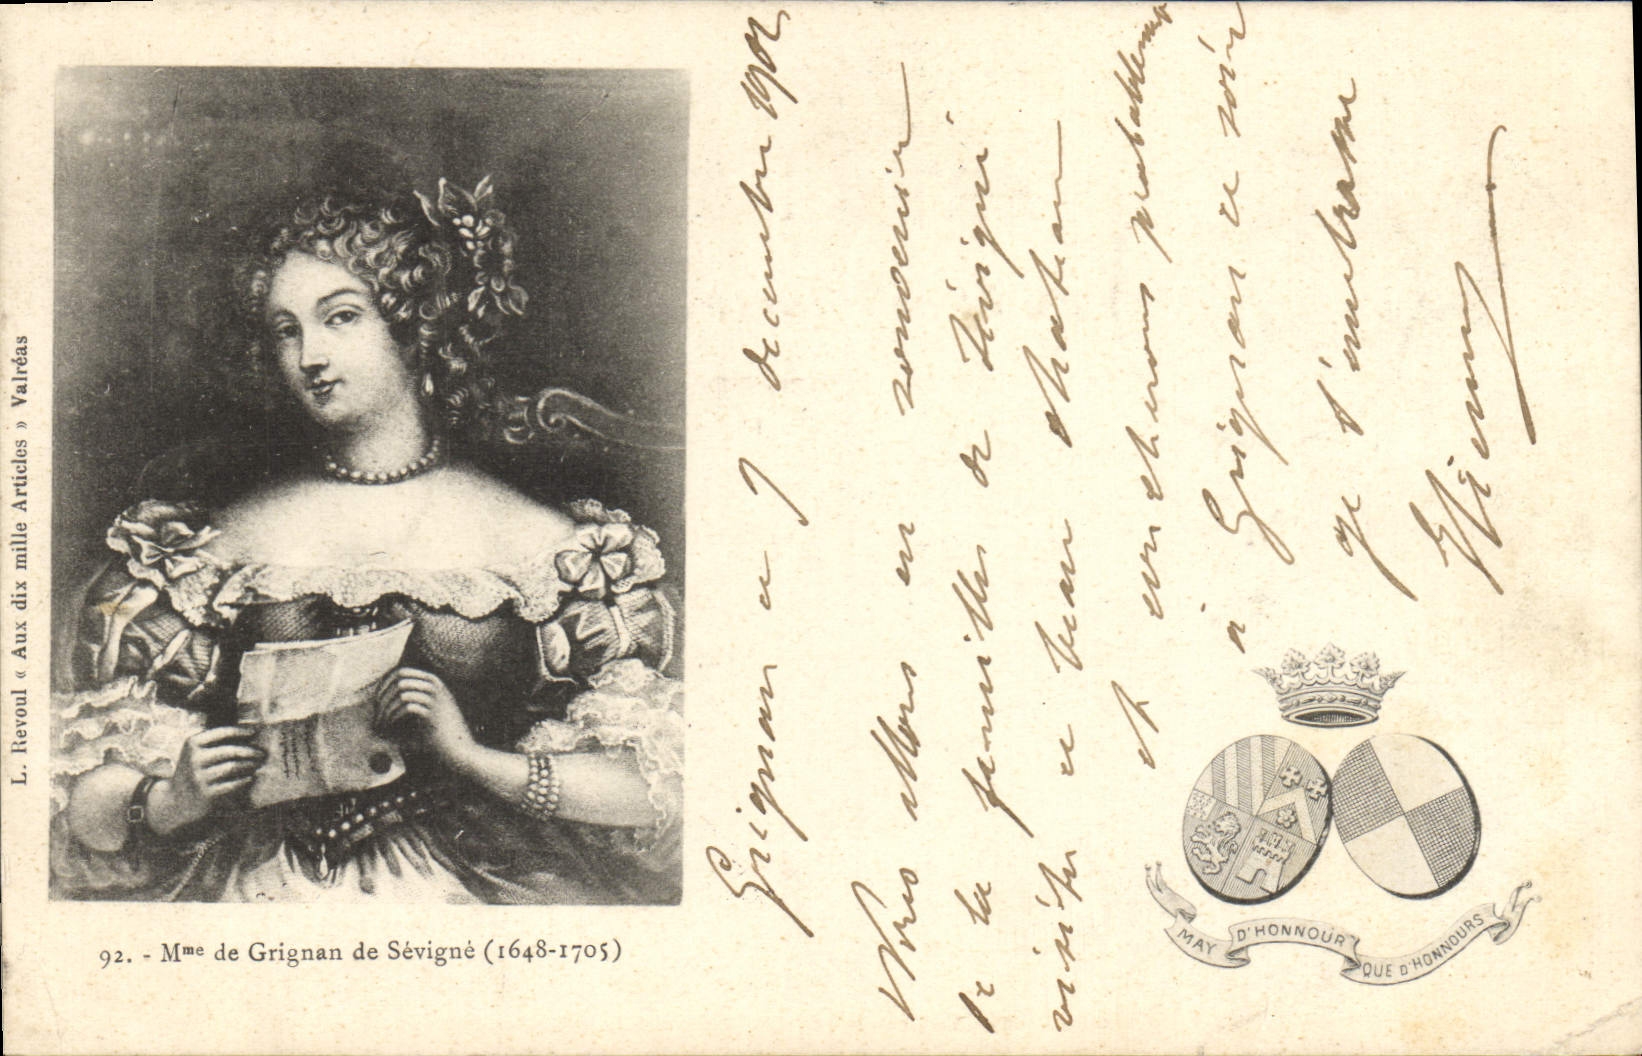 L. Revoul « Aux dix mille Articles » Valréas
92. - Mme de Grignan de Sévigné (1648-1705)
Grignan ce 7 décembre 1902
Nous allons en souvenir
de la famille de Sévigné
visiter ce beau chateau
et coucherons probablement
à Grignan ce soir
je t'embrasse
MAY D'HONNOUR QUE D'HONNOURS